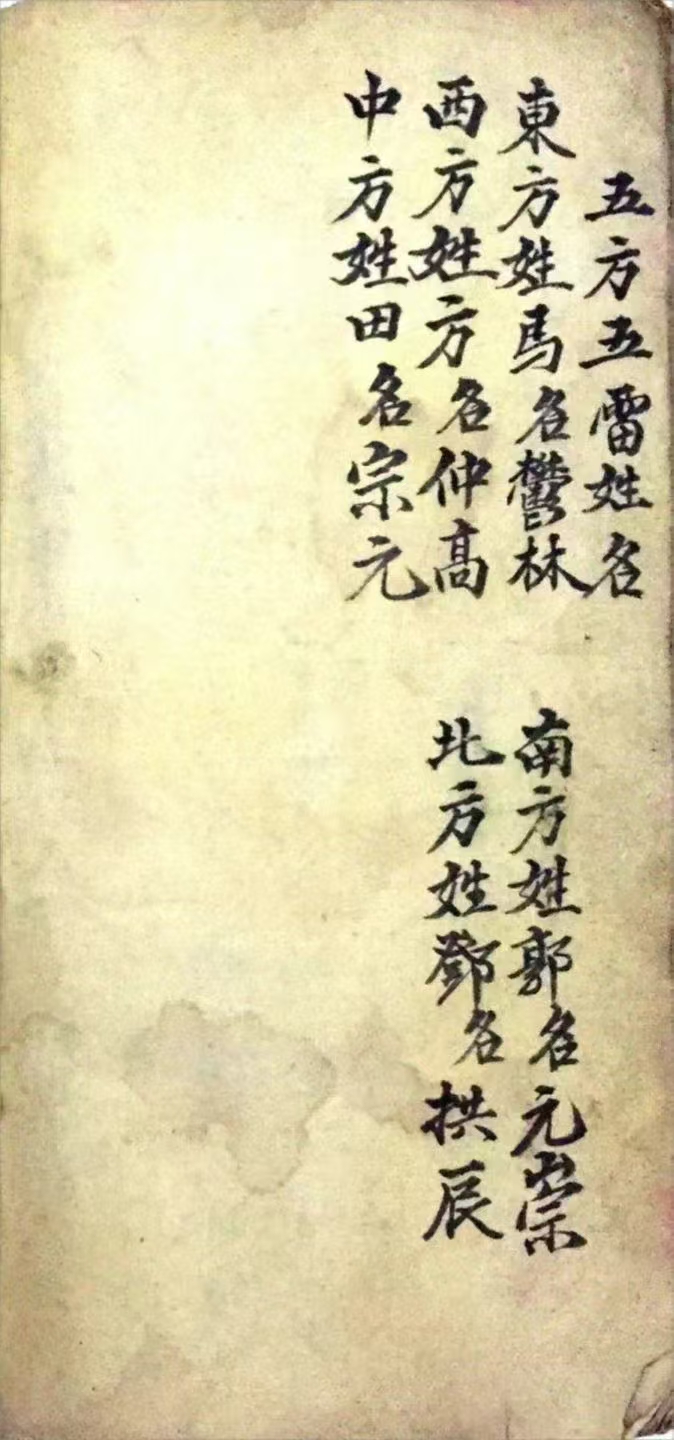 五方五雷姓名
東方姓馬名鬱林
南方姓郭名元崇
西方姓方名仲高
北方姓鄧名拱辰
中方姓田名宗元